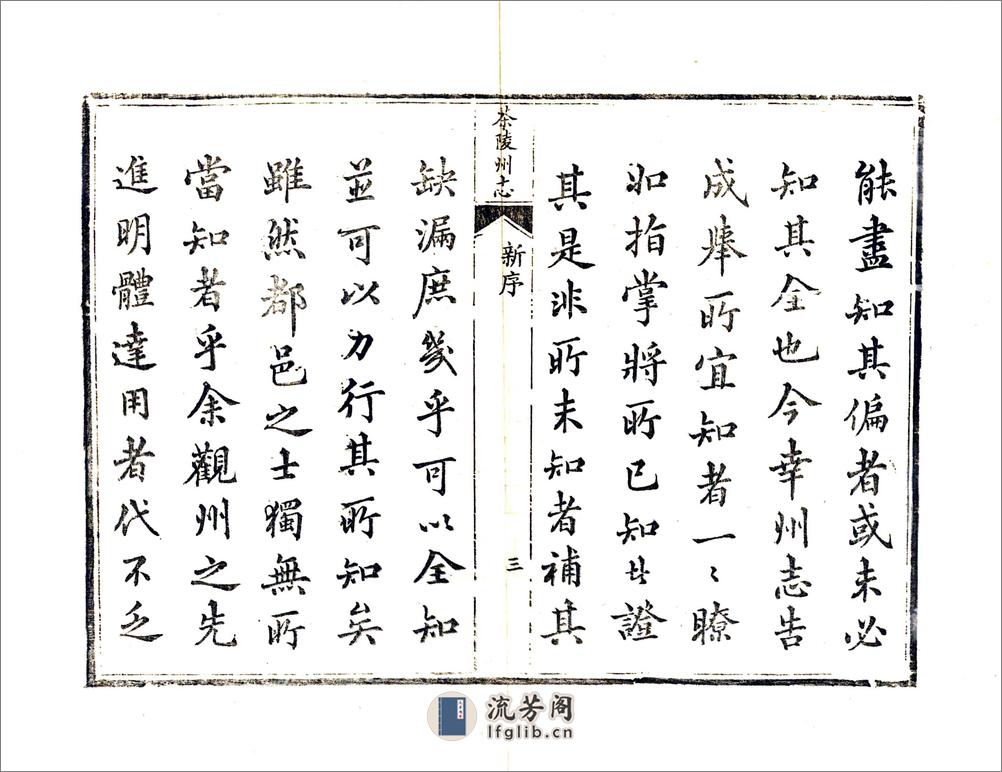 能盡知其偏者或未必
知其全也今幸州志告
成舉所宜知者一〻瞭
如指掌將所已知者證
其是非所未知者補其
茶陵州志
新序
三
缺漏庶幾乎可以全知
並可以力行其所知矣
雖然都邑之士獨無所
當知者乎余觀州之先
進明體達用者代不乏
流芳阁
lfglib.cn